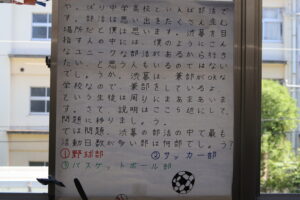 やっぱり中学高校といえば部活で
す。部活は思い出をたくさん生む
場所だと僕は思います。渋幕を目
指す人の中には、僕のようにこん
なユニークな部活があるから行き
たい、と思う人もいるのではない
でしょうか。渋幕は、兼部がokな
学校なので、兼部をしているよ、
という生徒は周りにまあまあいま
す。さて、説明はここら辺にして、
問題に移りましょう。
では問題。渋幕の部活の中で最も
活動日数が多い部は何部でしょう?
①野球部 ②サッカー部
③バスケットボール部